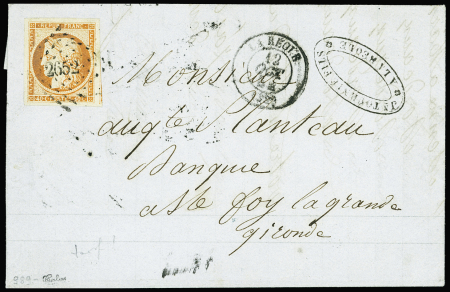 REPUB. FRANC.
2652
LA REOLE
12
A LA REOLE
Monsieur
augte Planteau
Banquier
a Ste foy la grande
gironde